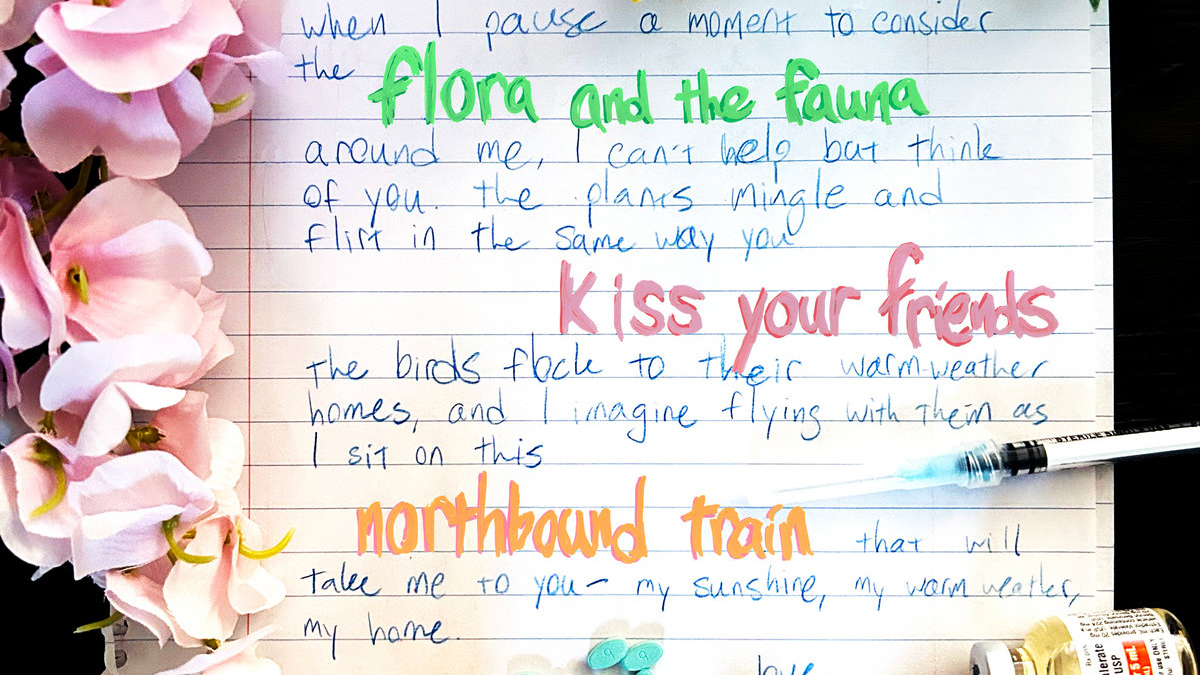 when I pause a moment to consider
the flora and the fauna
around me, I can't help but think
of you. the plants mingle and
flirt in the same way you
kiss your friends
the birds flock to their warm-weather
homes, and I imagine flying with them as
I sit on this
northbound train that will
take me to you- my sunshine, my warm weather,
my home.
love